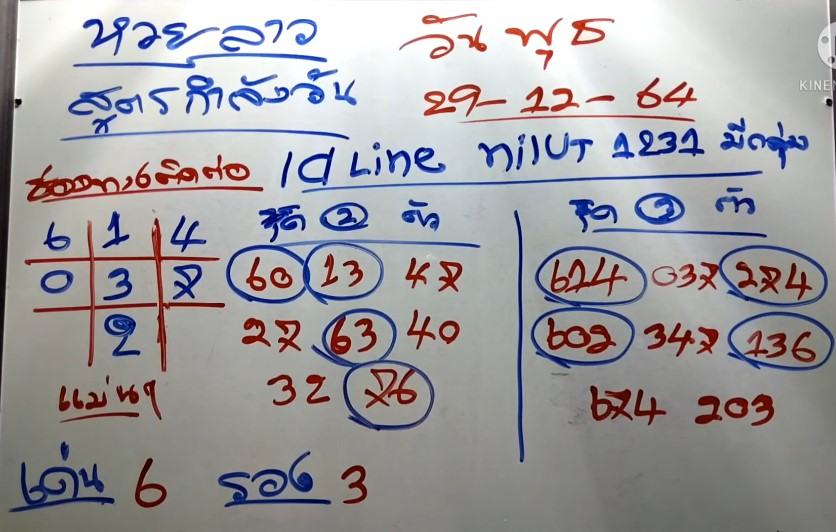 หวยลาว วันพุธ
สูตรกำลังวัน 29-12-64
ช่องทางติดต่อ Id Line nilUT 1231 มีกลุ่ม
6 1 4 ชุด 2 ตัว ชุด 3 ตัว
0 3 7 60 13 47 614 037 274
2 27 63 40 602 347 136
แม่นๆ 32 76 674 203
เด่น 6 รอง 3
KINEM